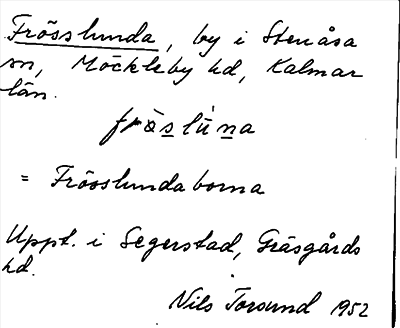 Frösslunda, by i Stenåsa
sn, Möckleby hd, Kalmar
län.
frö̀slúna
= Frösslundaborna
Uppt. i Segerstad, Gräsgårds
hd.
Nils Torsund 1952